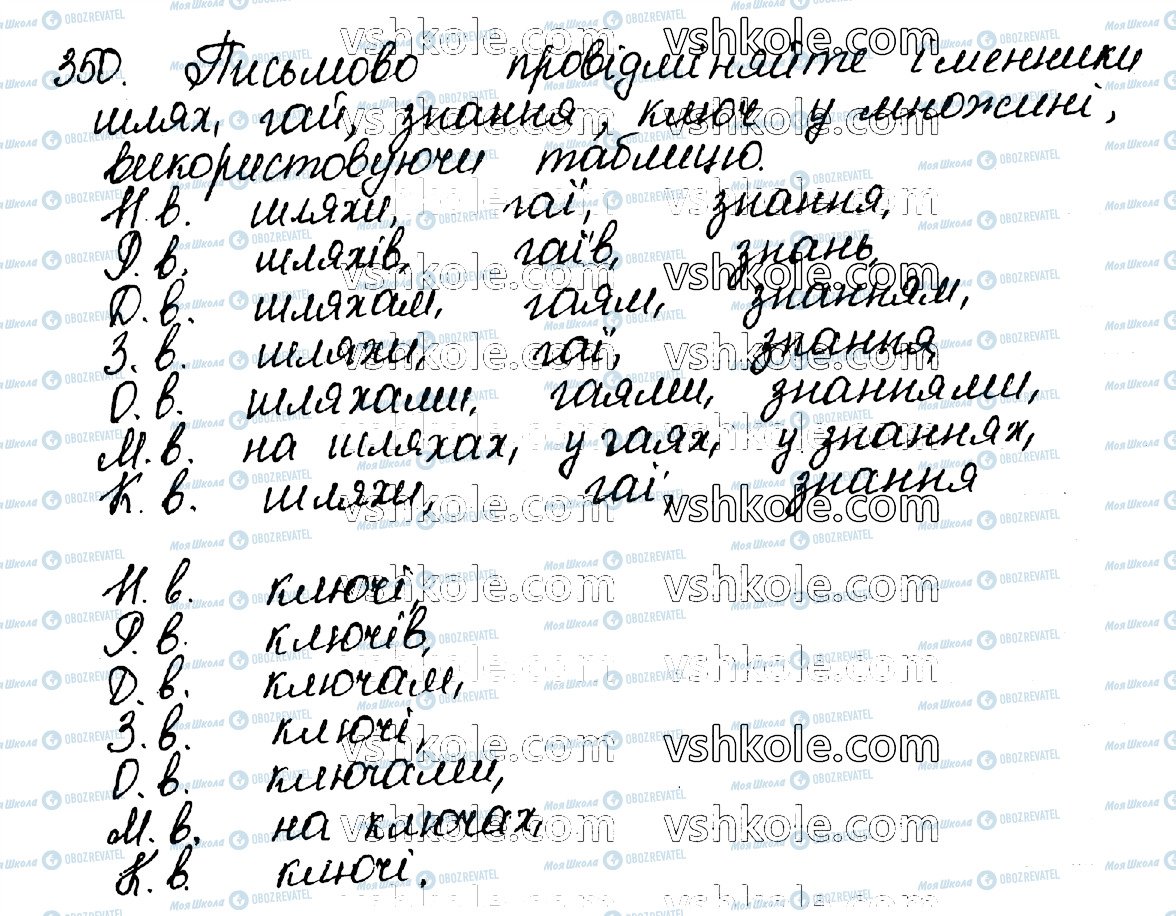 350. Письмово провідміняйте іменники
шлях, гай, знання, ключ у множині,
використовуючи таблицю.
Н.в. шляхи, гаї, знання,
Р.в. шляхів, гаїв, знань,
Д.в. шляхам, гаям, знанням,
З.в. шляхи, гаї, знання,
О.в. шляхами, гаями, знаннями,
М.в. на шляхах, у гаях, у знаннях,
К.в. шляхи, гаї, знання
Н.в. ключі,
Р.в. ключів,
Д.в. ключам,
З.в. ключі,
О.в. ключами,
М.в. на ключах,
К.в. ключі.
vshkole.com
МояШкола OBOZREVATEL